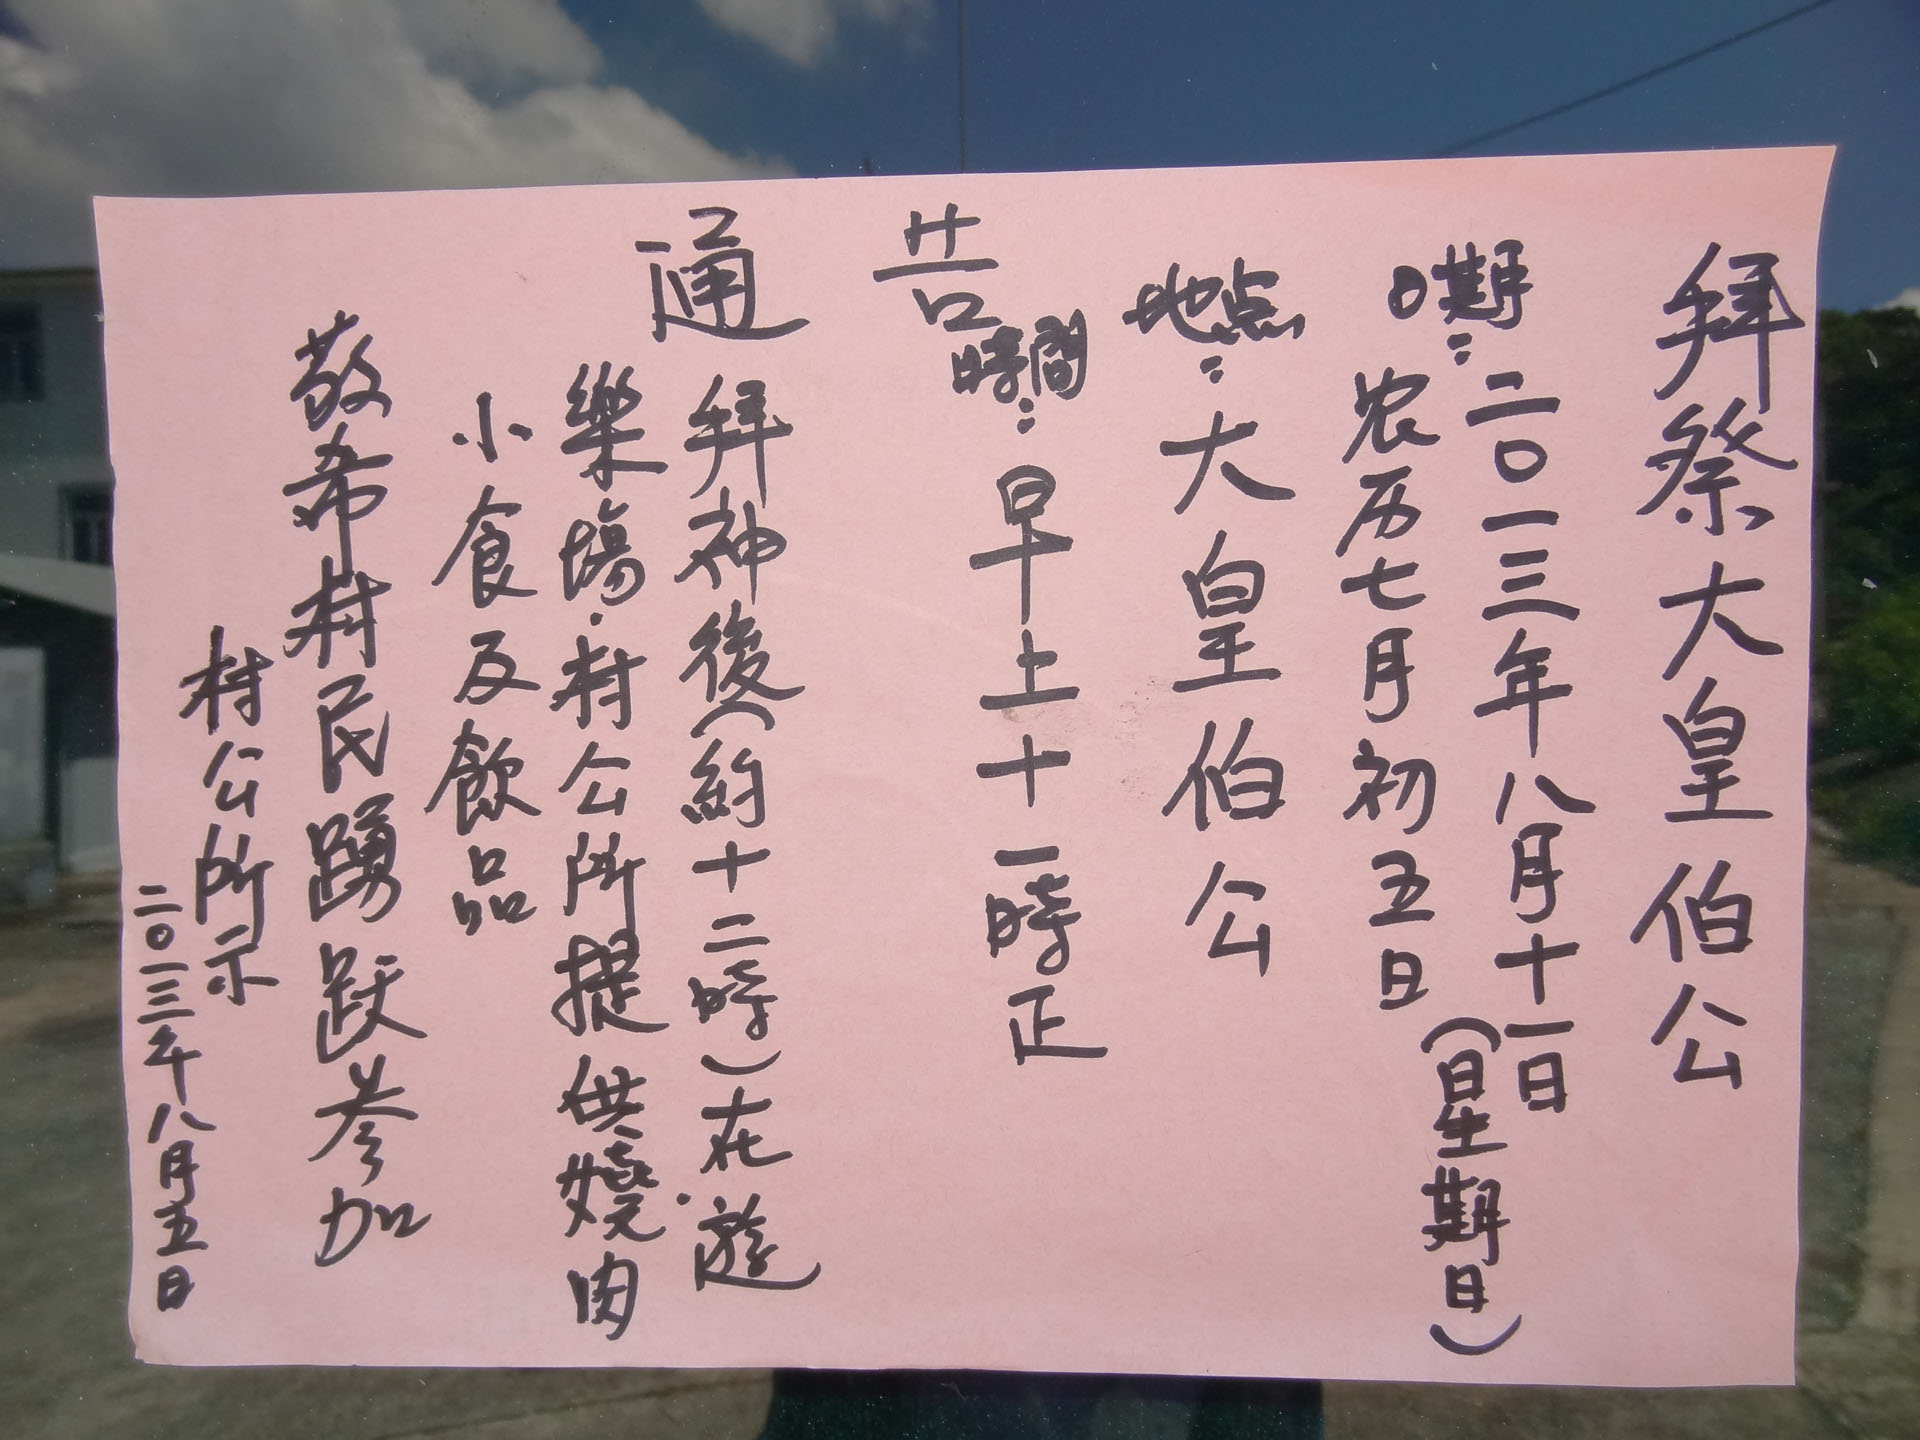 通告
拜祭大皇伯公
日期：二〇一三年八月十一日
农历七月初五日（星期日）
地点：大皇伯公
時間：早上十一時正
拜神後（約十二時）在遊
樂場．村公所提供燒肉
小食及飲品
敬希村民踴跃参加
村公所示
二〇一三年八月五日